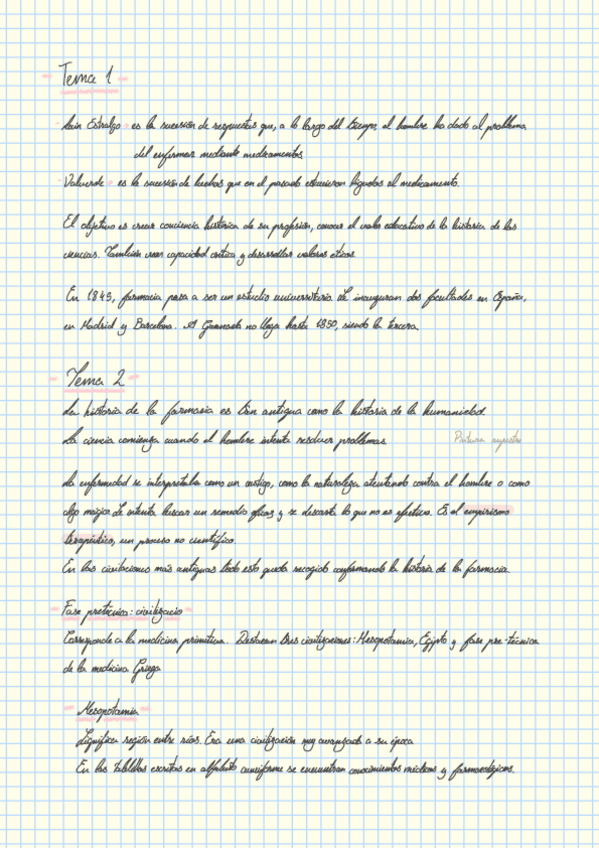 Tema 1
Laín Entralgo es la sucesión de respuestas que, a lo largo del tiempo, el hombre ha dado al problema
del enfermar mediante medicamentos
Valverde es la sucesión de hechos que en el pasado estuvieron ligados al medicamento.
El objetivo es crear conciencia histórica de su profesión, conocer el valor educativo de la historia de las
ciencias. También crear capacidad crítica y desarrollar valores éticos
En 1845, farmacia pasa a ser un estudio universitario. Se inauguran dos facultades en España,
en Madrid y Barcelona. A Granada no llega hasta 1850, siendo la tercera.
Tema 2
La historia de la farmacia es tan antigua como la historia de la humanidad.
La ciencia comienza cuando el hombre intenta resolver problemas. Pinturas rupestres
La enfermedad se interpretaba como un castigo, como la naturaleza atentando contra el hombre o como
algo mágico. Se intenta buscar un remedio eficaz y se descarta lo que no es efectivo. Es el empirismo
terapéutico, un proceso no científico.
En las civilizaciones más antiguas todo esto queda recogido conformando la historia de la farmacia.
Fase pretécnica: civilizacio
Corresponde a la medicina primitiva. Destacan tres civilizaciones: Mesopotamia, Egipto y fase pre-técnica
de la medicina Griega
Mesopotamia
Significa región entre ríos. Era una civilización muy avanzada a su época
En las tablillas escritas en alfabeto cuneiforme se encuentran conocimientos médicos y farmacológicos.